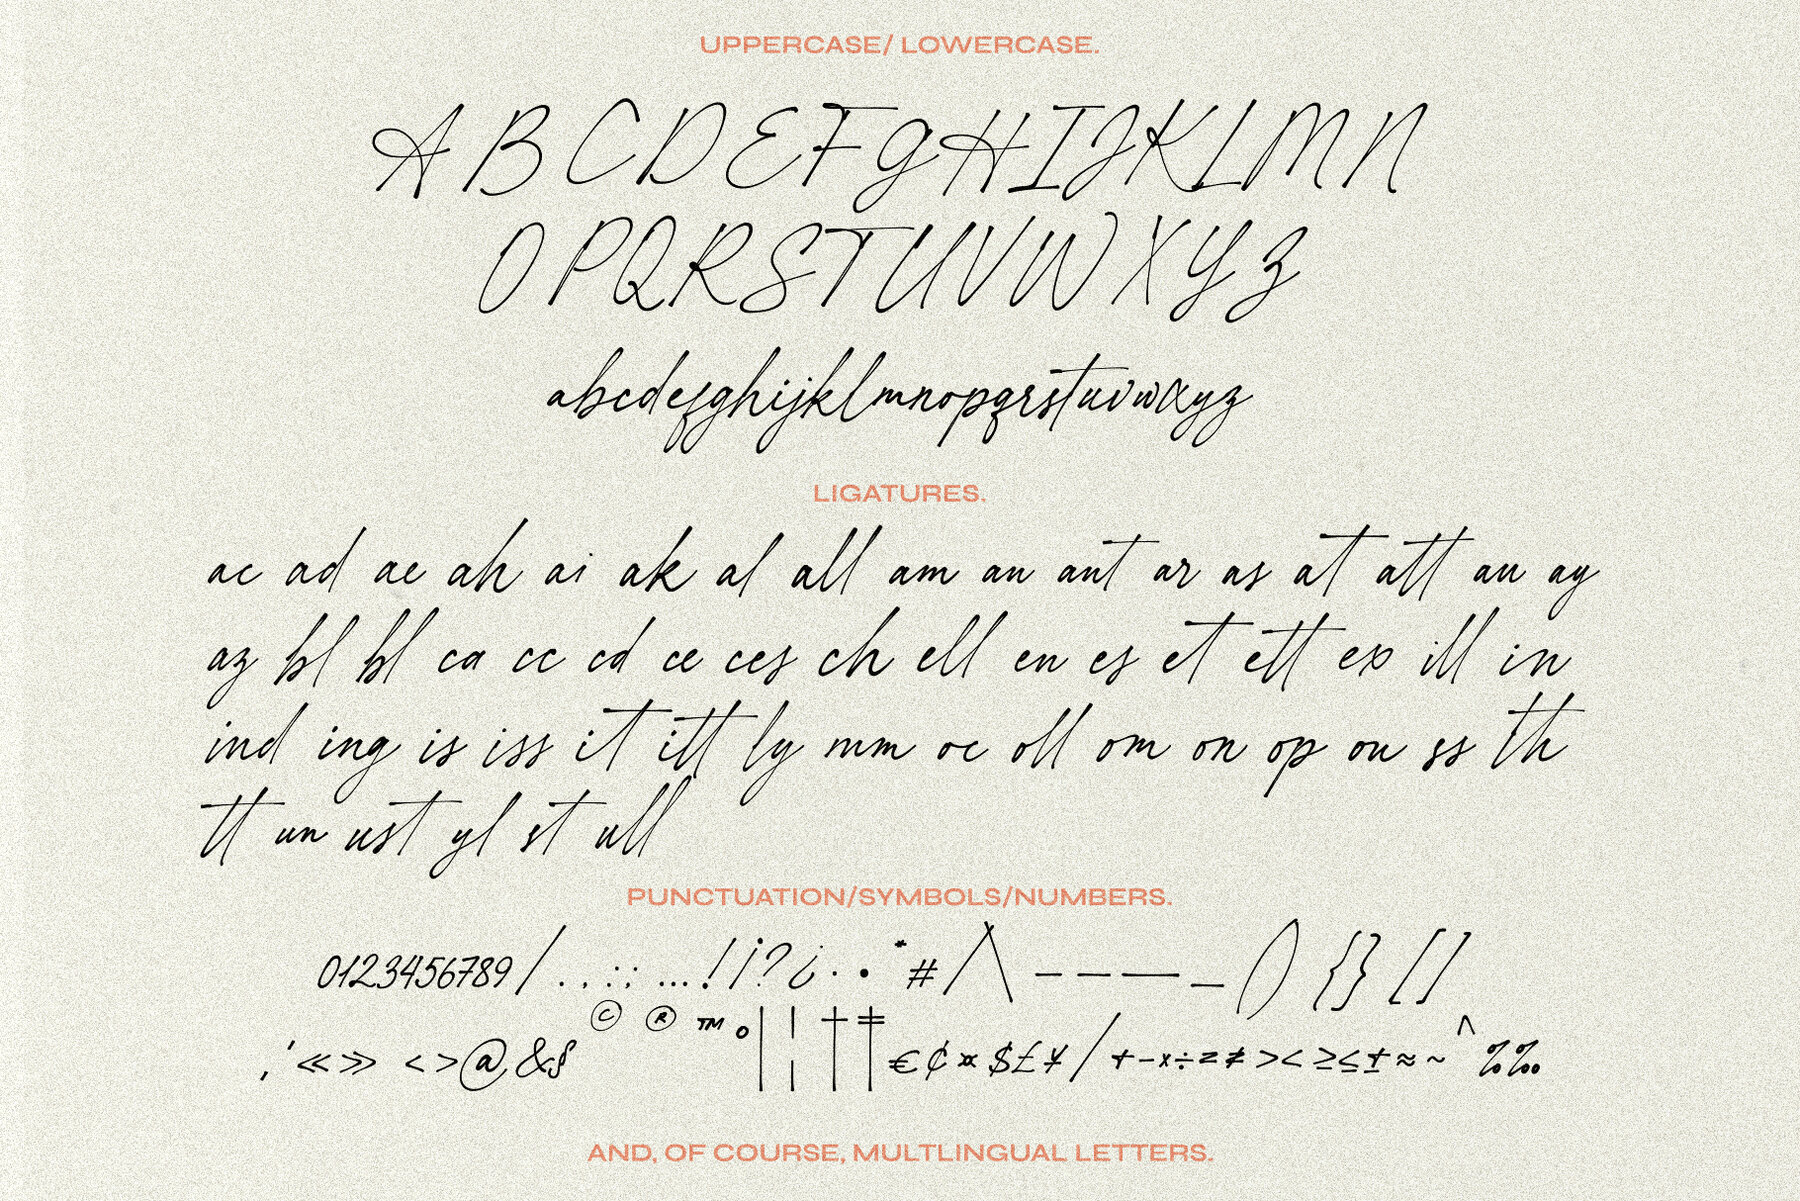 UPPERCASE/ LOWERCASE.
A B C D E F G H I J K L M N
O P Q R S T U V W X Y Z
abcdefghijklmnopqrstuvwxyz
LIGATURES.
ac ad ae ah ai ak al all am an ant ar as at att au ay
az bl bl ca cc cd ce ces ch ell en es et ett ex ill in
ind ing is iss it itt ly mm oc oll om on op ou ss th
tt un ust yl st ull
PUNCTUATION/SYMBOLS/NUMBERS.
0123456789/ . , : ; ... ! ¡ ? ¿ · • * # / \ - – — _ ( ) { } [ ]
, ' « » < > @ & § © ® ™ ° | ¦ † ‡ € ¢ ¤ $ £ ¥ / + − × ÷ = ≠ > < ≥ ≤ ± ≈ ~ ^ % ‰
AND, OF COURSE, MULTLINGUAL LETTERS.